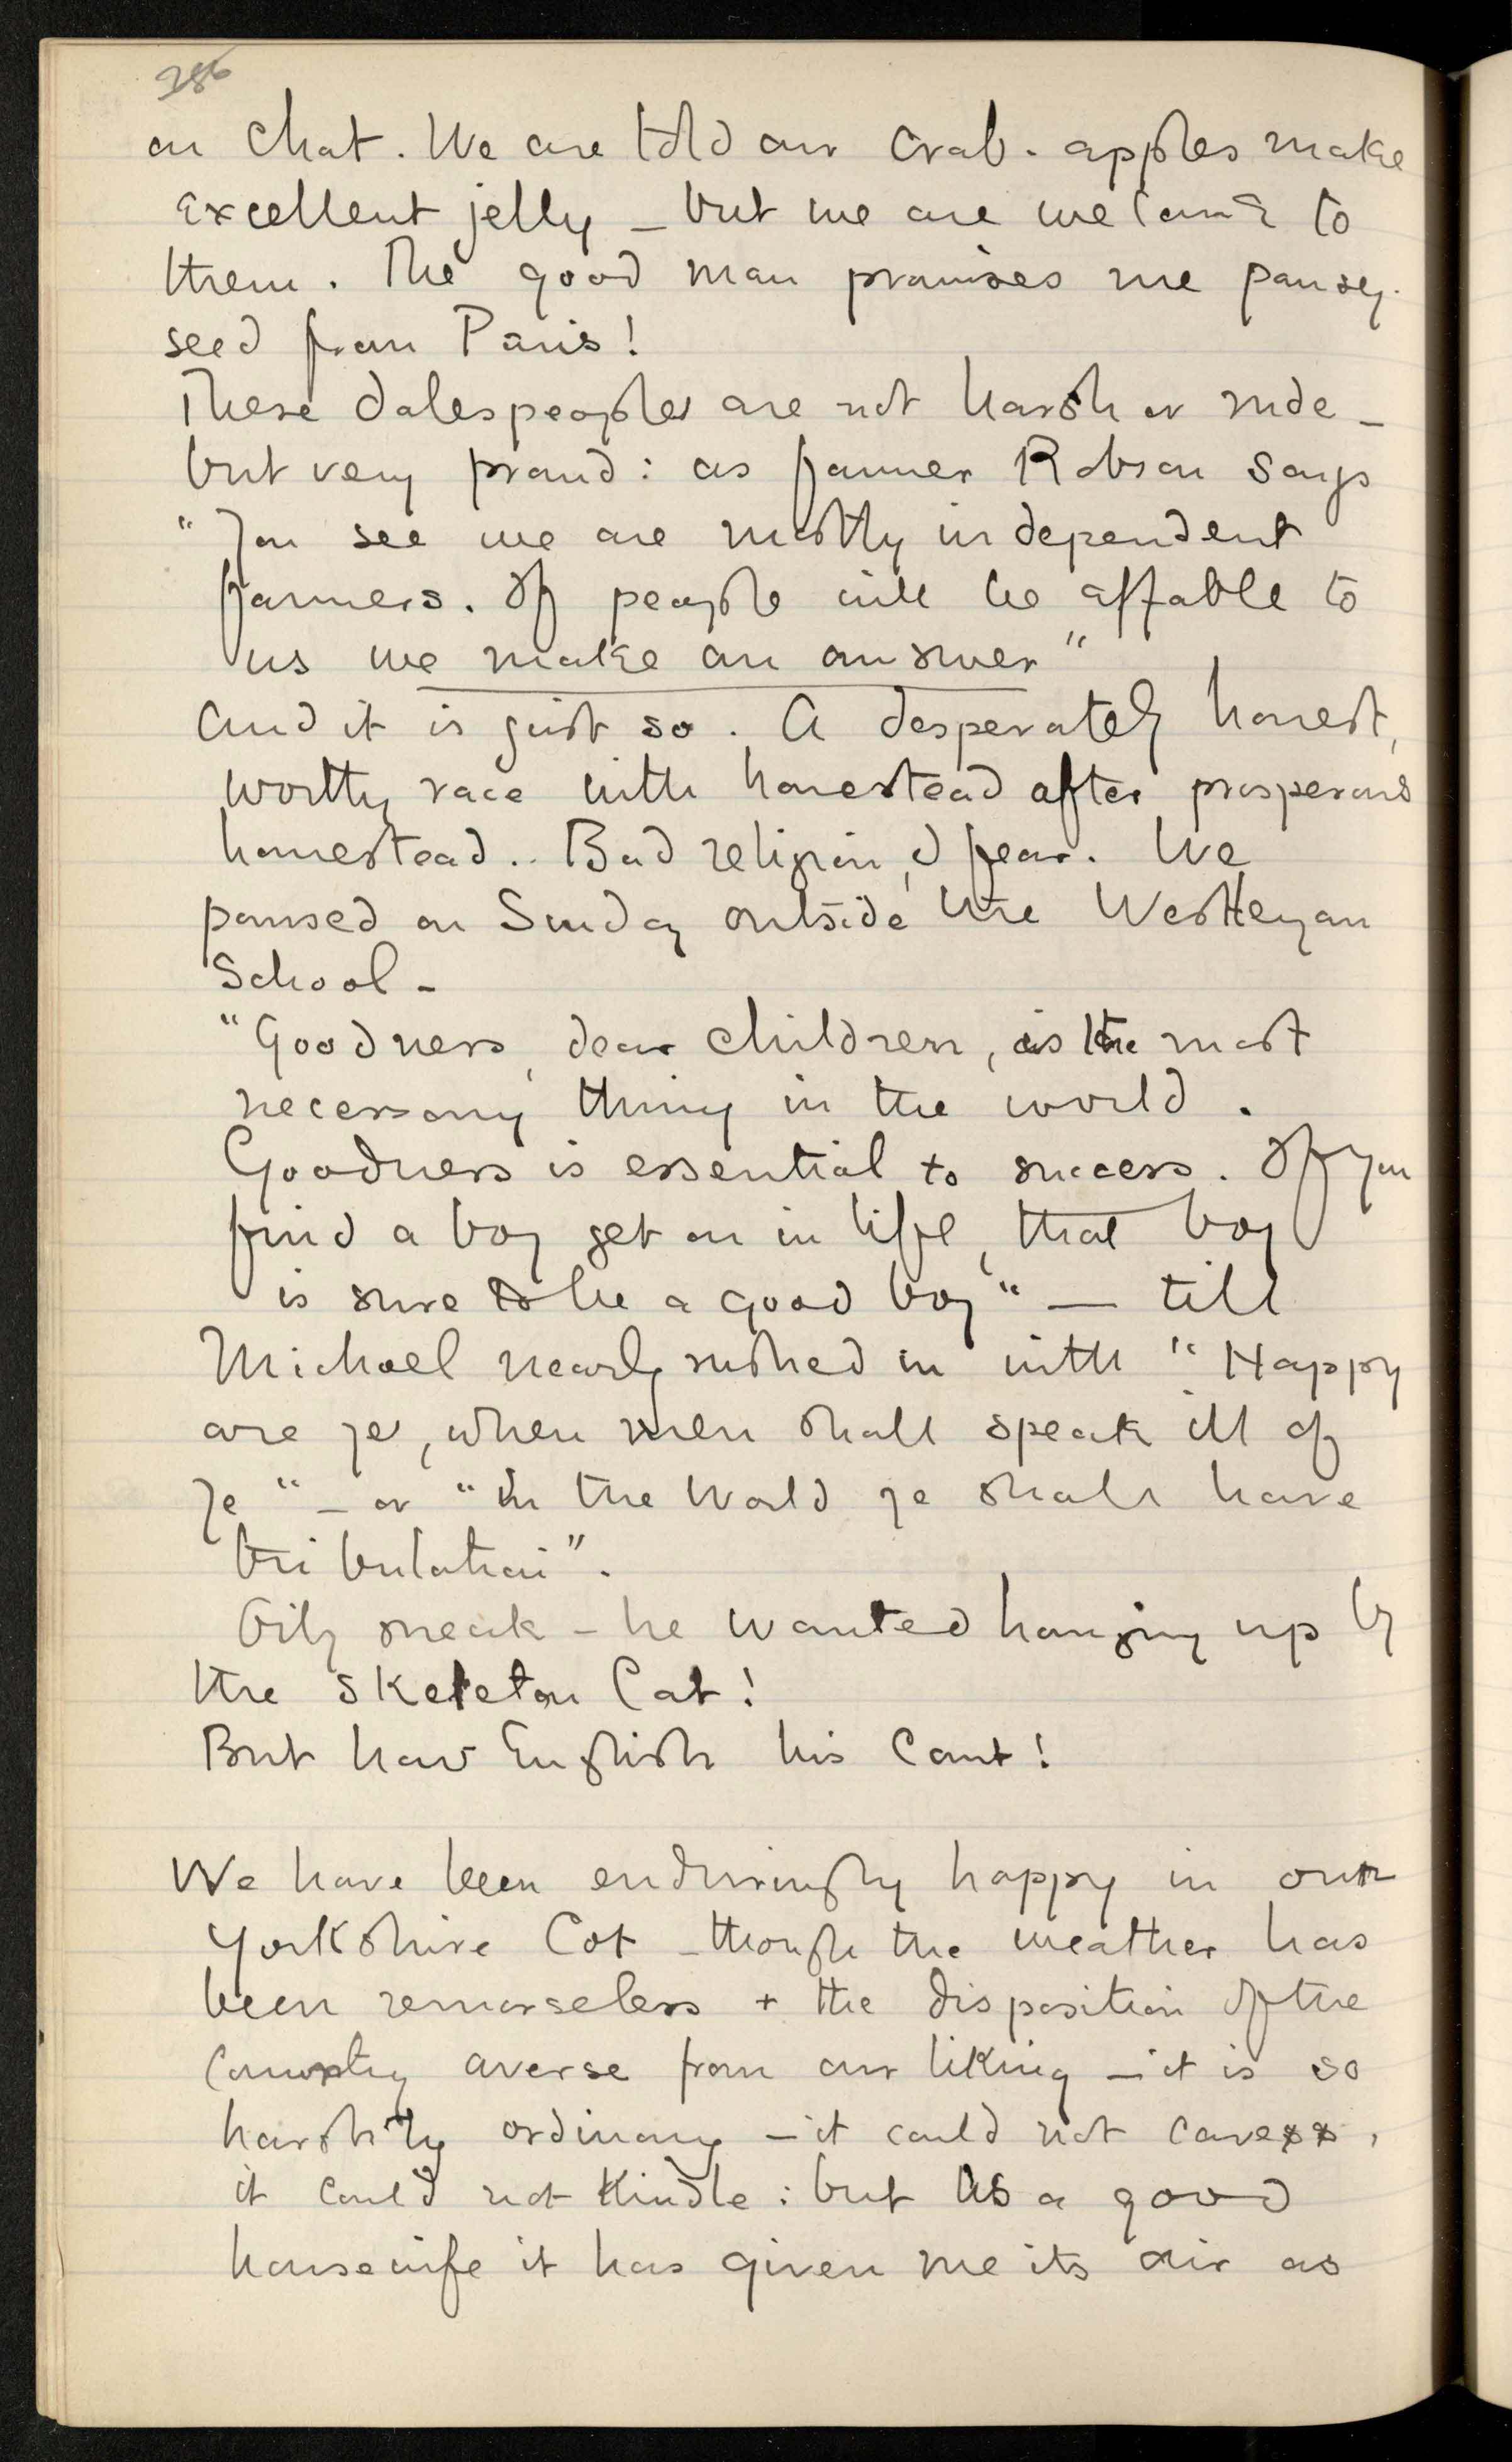 286
our Chat. We are told our crab-apples make
excellent jelly – but we are welcome to
them. The good man promises me pansy-
seed from Paris!
These dalespeople are not harsh or rude –
but very proud: as farmer Robson says
"You see we are mostly independent
farmers. If people will be affable to
us we make an answer"
And it is just so. A desperately honest,
worthy race with homestead after prosperous
homestead.. Bad religion, I fear. We
paused on Sunday outside the Westleyan
School –
"Goodness, dear children, is the most
necessary thing in the world.
Goodness is essential to success. If you
find a boy get on in life, that boy
is sure to be a good boy" — till
Michael nearly rushed in with "Happy
are ye, when men shall speak ill of
ye" – or "In the World ye shall have
tribulation".
Oily sneak – he wanted hanging up by
the skeleton Cat!
But how English his Cant!
We have been enduringly happy in our
Yorkshire Cot – though the weather has
been remorseless + the disposition of the
country averse from our liking – it is so
harshly ordinary – it could not caress,
it could not kindle: but as a good
housewife it has given me its air as